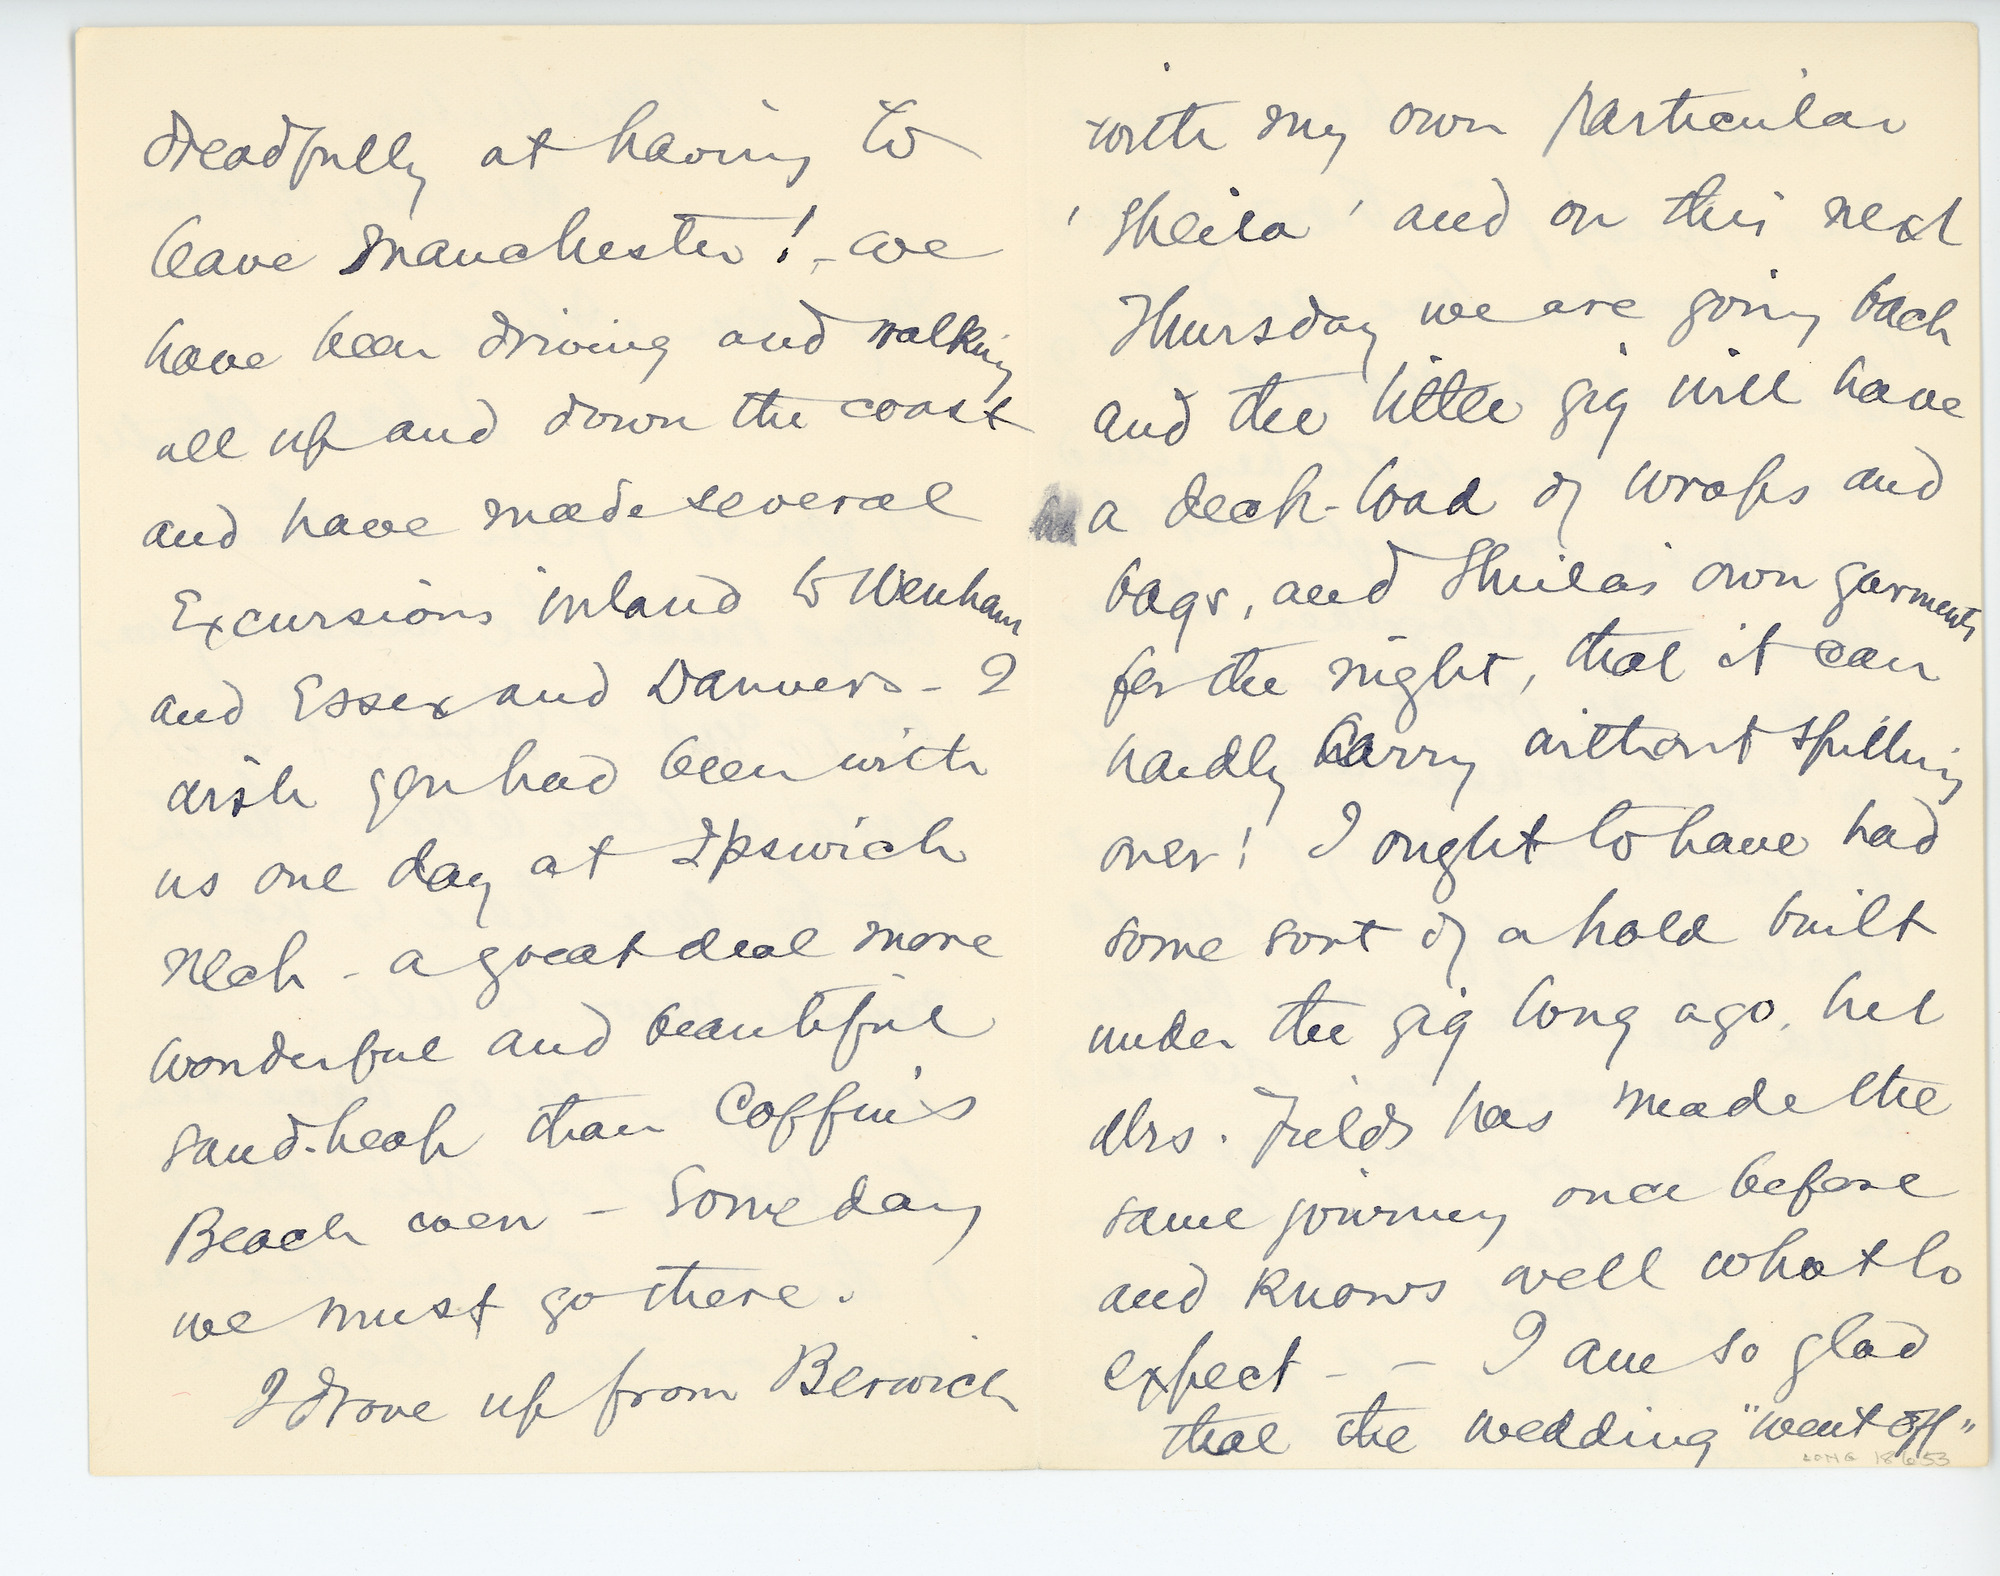 dreadfully at having to
leave Manchester! - we
have been driving and walking
all up and down the coast
and have made several
Excursions inland to Wenham
and Essex and Danvers - I
wish you had been with
us one day at Ipswich
Neck - a great deal more
wonderful and beautiful
sand-heap than Coffin's
Beach even - Some day
we must go there.
I drove up from Berwick
with my own particular
'Sheila' and on this next
Thursday we are going back
and the little gig will have
a deck-load of wraps and
bags, and Sheila's own garments
for the night, that it can
hardly carry without spilling
over! I ought to have had
some sort of a hold built
under the gig long ago, but
Mrs. Fields has made the
same journey once before
and knows well what to
expect - - I am so glad
that the wedding "went off"
LONG 18653